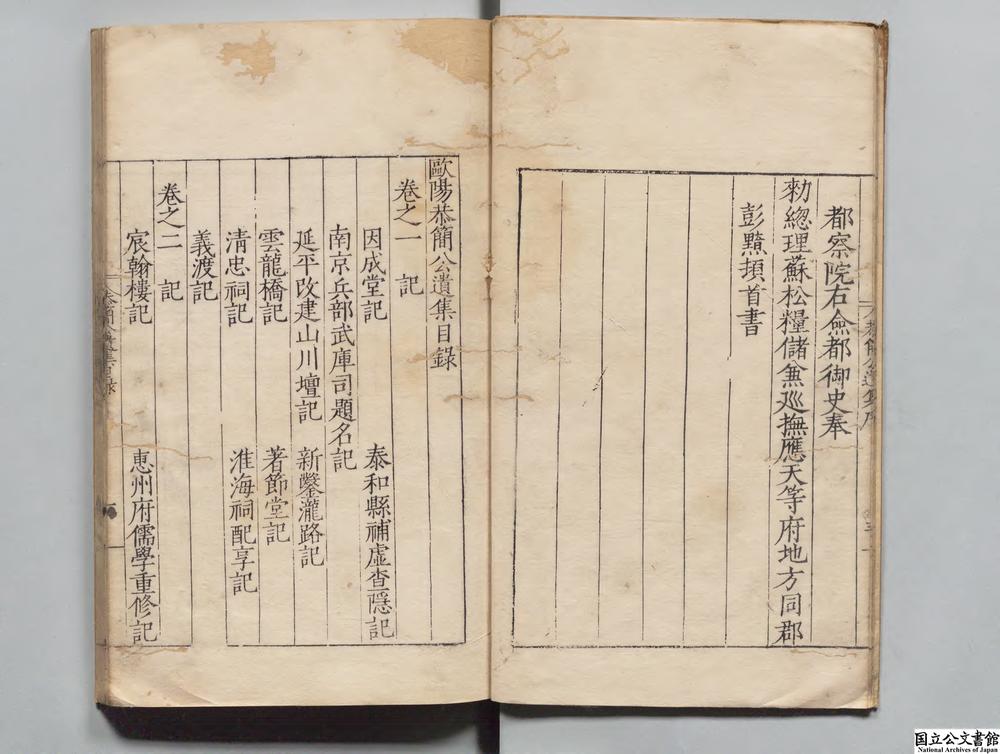 都察院右僉都御史奉
勑總理蘇松糧儲兼廵撫應天等府地方同郡
彭黯頓首書
歐陽恭簡公遺集目錄
卷之一　記
因成堂記　泰和縣補虛查隱記
南京兵部武庫司題名記
延平改建山川壇記　新鑿瀧路記
雲龍橋記　著節堂記
淸忠祠記　淮海祠配享記
義渡記
卷之二　記
宸翰樓記　惠州府儒學重修記
国立公文書館
National Archives of Japan